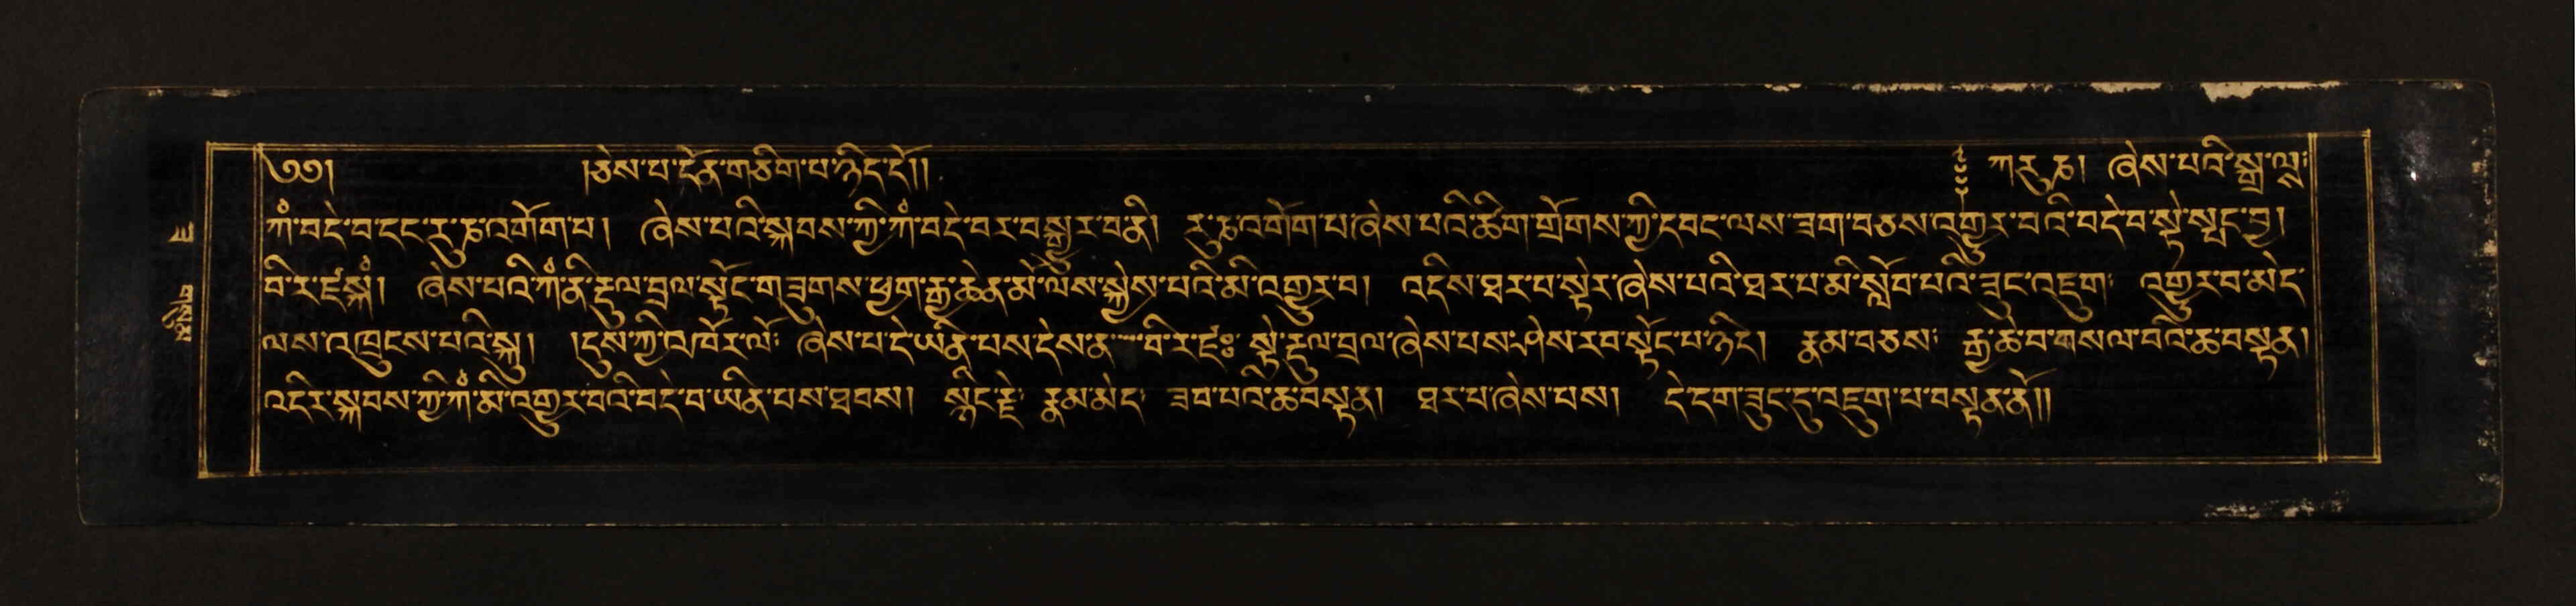 ༄༅། །ཅེས་པ་དོན་གཅིག་པ་ཉིད་དོ།། ཀ་རུ་ཎ། ཞེས་པའི་སྒྲ་ལྟ༔
ཀཾ་བདེ་བ་དང་རུ་ཎ་འགོག་པ། ཞེས་པའི་སྐབས་ཀྱི་ཀཾ་བདེ་བར་བསྒྱུར་བ་ནི། རུ་ཎ་འགོག་པ་ཞེས་པའི་ཚིག་གྲོགས་ཀྱི་དབང་ལས་ཟག་བཅས་འགྱུར་བའི་བདེ་བ་སྟེ་སྤང་བྱ།
བི་ར་ཛཾ་སྐཾ། ཞེས་པའི་ཀཾ་ནི་རྡུལ་བྲལ་སྟོང་གཟུགས་ཕྱག་རྒྱ་ཆེན་མོ་ལས་སྐྱེས་པའི་མི་འགྱུར་བ། འདིས་ཐར་པ་སྟེར་ཞེས་པའི་ཐར་པ་མི་སློབ་པའི་ཟུང་འཇུག འགྱུར་བ་མེད་
ལས་འཁྲུངས་པའི་སྐུ། །དུས་ཀྱི་འཁོར་ལོ༔ ཞེས་པ་དེ་ཡིན་པས་དེས་ན་བི་ར་ཛཿ སྟེ་རྡུལ་བྲལ་ཞེས་པས་ཤེས་རབ་སྟོང་པ་ཉིད། རྣམ་བཅས༔ རྒྱ་ཆེ་བ་གསལ་བའི་ཆ་བསྟན།
འདིར་སྐབས་ཀྱི་ཀཾ་མི་འགྱུར་བའི་བདེ་བ་ཡིན་པས་ཐབས། སྙིང་རྗེ་ རྣམ་མེད་ ཟབ་པའི་ཆ་བསྟན། ཐར་པ་ཞེས་པས། དེ་དག་ཟུང་དུ་འཇུག་པ་བསྟན་ནོ།།